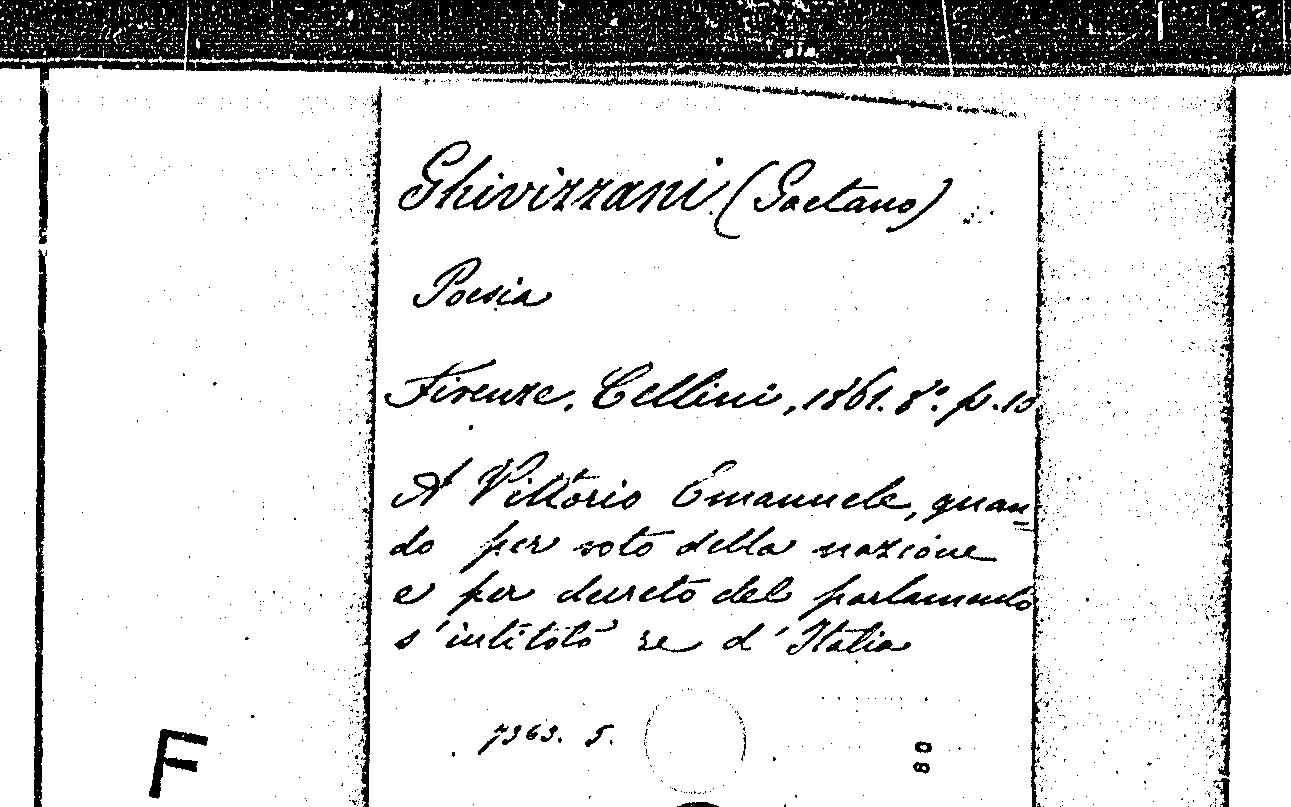 Ghivizzani (Gaetano)
Poesia
Firenze, Cellini, 1861. 8º. p. 10
A Vittorio Emanuele, quan=
do per voto della nazione
e per decreto del parlamento
s'intitolò re d'Italia
7363. 5.
80
F